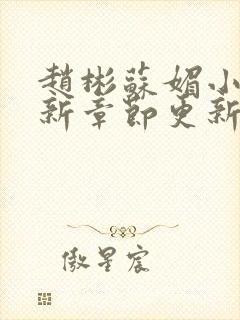 趙彬蘇媚小
新章節更新
傲星宸